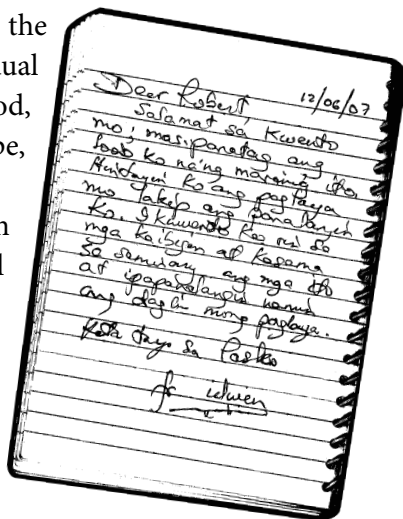 the
ual
od,
pe,
n
l
Dear Robert, 12/06/07
Salamat sa kwento
mo, masipanatag ang
loob ko na'ng marinig ito.
Hintayin ko ang paglaya
mo ang panalangin
ko. Ikwento ko rin sa
mga kaibigan at kasama
sa seminary ang mga ito
at ipapanalangin namin
ang dagli mong paglaya.
Kita tayo sa Pasko